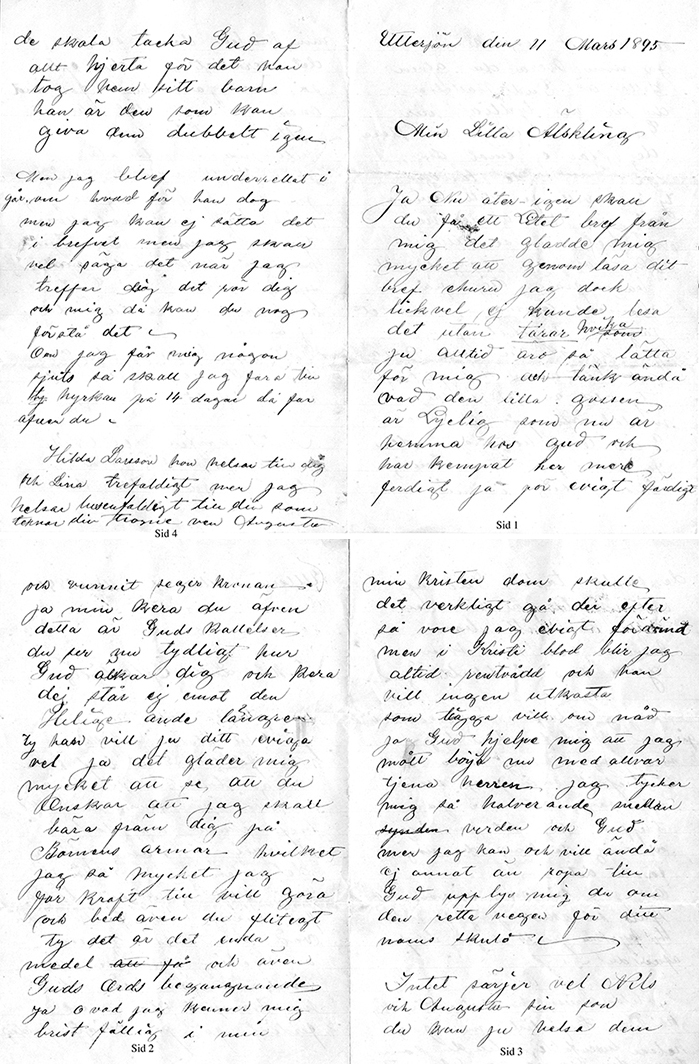 Utterjön den 11 Mars 1895
Min Lilla Älskling
Ja Nu åter igen skall
du få ett Litet bref från
mig det gladde mig
mycket att genom läsa dit
bref churu jag dock
likvel ej kunde lesa
det utan tårar hvilka som
ju alltid äro så lätta
för mig och tänk ändå
vad den lilla gossen
är Lyclig som nu är
hemma hos Gud och
har kempat her mere
ferdigt ja för evigt färdigt
Sid 1
och vunnit seger kronan
ja min kera du äfven
detta är Guds kallelser
du ser nu tydligt hur
Gud älskar dig och kera
dej står ej emot den
Helige ande längren
ty han vill ju ditt eviga
vel ja det gläder mig
mycket att se att du
Önskar att jag skall
bära främ dig på
Bönens armar hvilket
jag så mycket jag
får kraft till vill göra
och bed även du flitegt
ty det är det enda
medel att få och även
Guds Ords begangnande
ja o vad jag kenner mig
brist fällig i min
Sid 2
min kristen dom skulle
det verkligt gå der efter
så vore jag evigt fördömd
men i Kristi blod blir jag
altid rentvådd och han
vill ingen utkasta
som tigga vill om nåd
ja Gud hjelpe mig att jag
mått börja nu med allvar
tjena herren jag tycker
mig så halver ande mellan
synden verden och Gud
mer jag kan och vill ändå
ej annat än ropa till
Gud upplys mig du om
den rette vegen för ditt
namns skuld
Intet särjer vel Nils
och Augusta sin son
du kan ju helsa dem
Sid 3
de skala tacka Gud af
allt hjerta för det han
tog hem sitt barn
han är den som kan
giva dem dubbelt igen
Men jag blef underrettat i
går om hvad för han dog
men jag kan ej sätta det
i brefvet men jag skall
vel säga det när jag
treffer dig det rör dig
och mig då kan du nog
förstå det
Om jag får mig någon
sjuts så skall jag fara till
hyrkan på 14 dagar då far
afven du
Hilda Larsson hon helsar till dig
och Lina trefaldigt mer jag
helsar tusenfaldigt till dig som
teknar din trogne ven Augusta
Sid 4